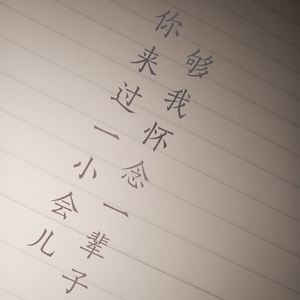 你来过一小会儿
够我怀念一辈子